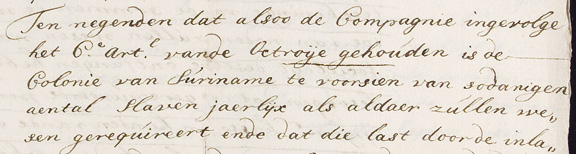 Ten negenden dat alsoo de Compagnie ingevolge
het 6e Art.l vande Octroije gehouden is de
Colonie van Suriname te voorsien van sodanigen
aental Slaven jaerlijx als aldaer zullen we„
sen gerequireert ende dat die last door de inla„